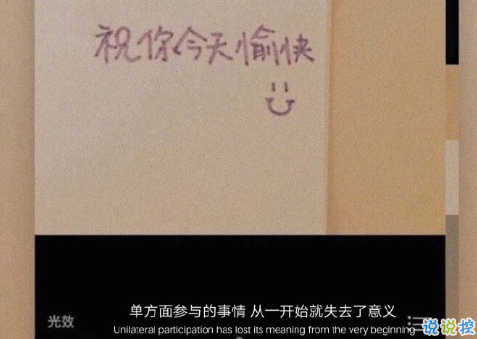 祝你今天愉快
单方面参与的事情 从一开始就失去了意义
光效
Unilateral participation has lost its meaning from the very beginning
说说控